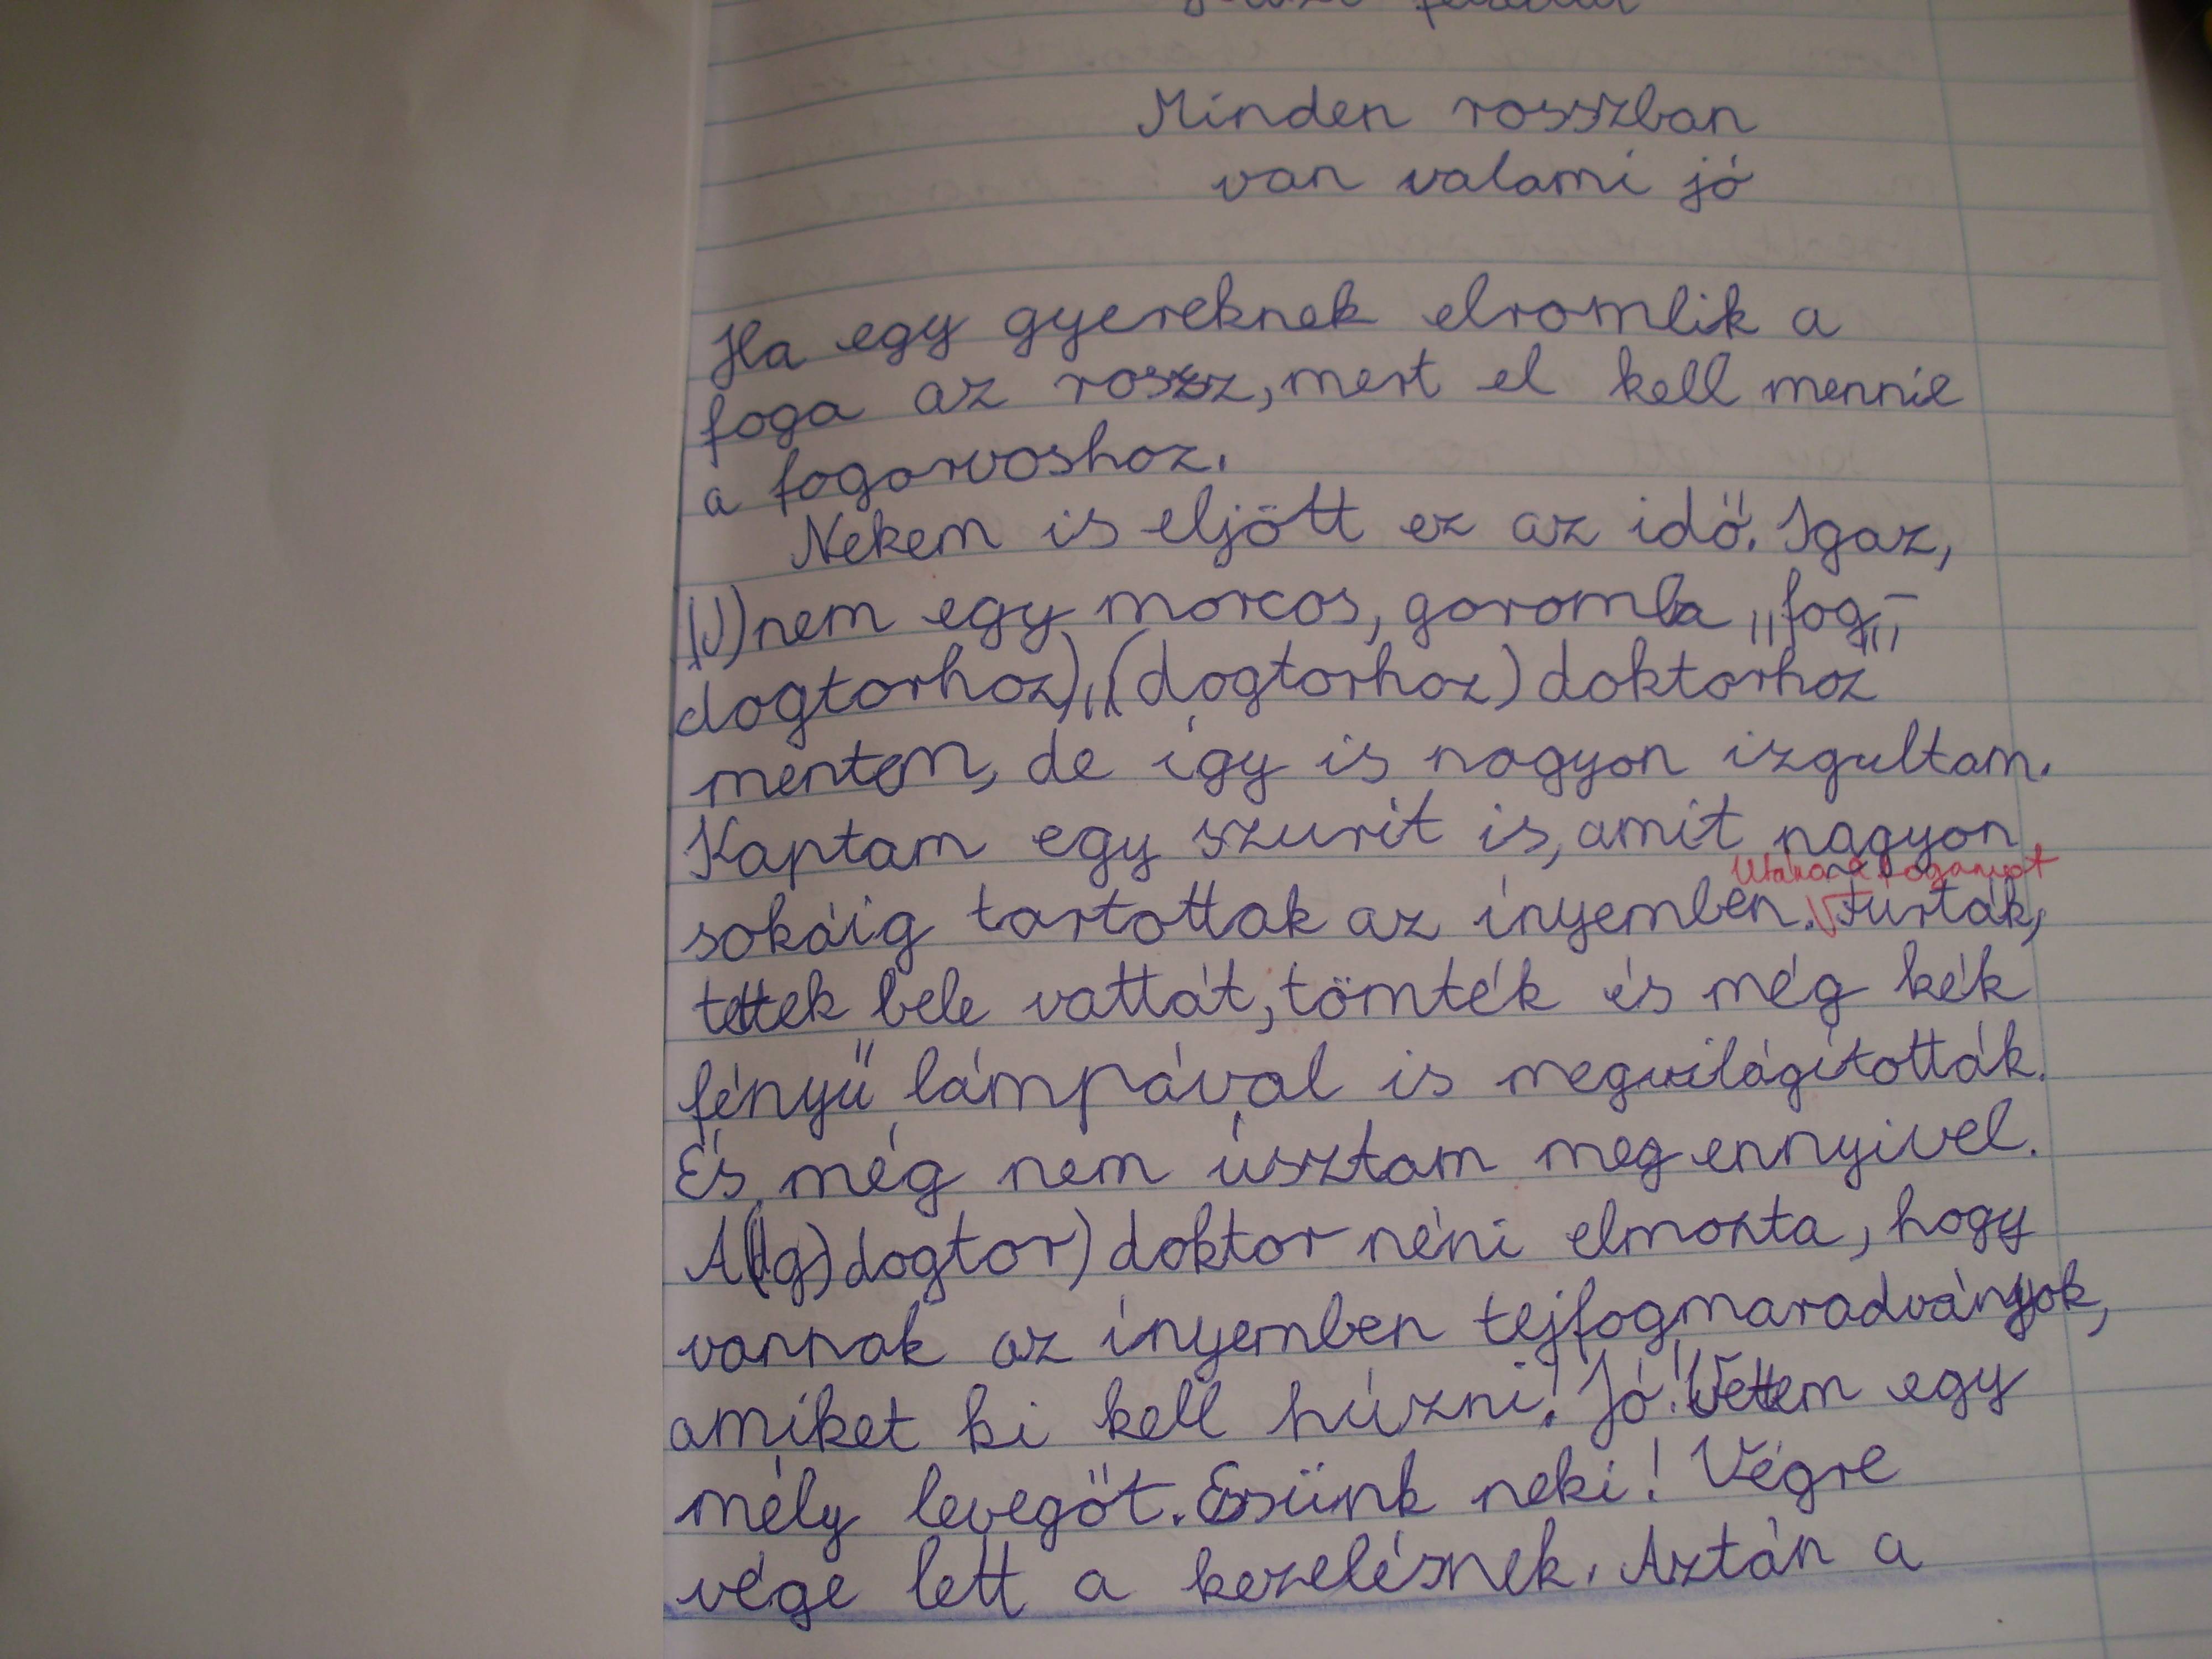 Minden rosszban
van valami jó
Ha egy gyereknek elromlik a
foga az rossz, mert el kell mennie
a fogorvoshoz.
Nekem is eljött ez az idő. Igaz,
nem egy morcos, goromba „fog-
dogtorhoz) (dogtorhoz) doktorhoz"
mentem, de így is nagyon izgultam.
Kaptam egy szurit is, amit nagyon
Utána a fogamat
sokáig tartottak az ínyemben. Fúrták,
tettek bele vattát, tömték és még kék
fényű lámpával is megvilágították.
És még nem úsztam meg ennyivel.
A (dg) dogtor) doktor néni elmonta, hogy
vannak az ínyemben tejfogmaradványok,
amiket ki kell húzni! Jó! Vettem egy
mély levegőt. Essünk neki! Végre
vége lett a kezelésnek. Aztán a